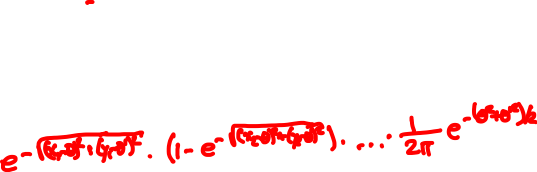 e^{-\sqrt{(x_1-θ)^2+(y_1-θ')^2}} · (1 - e^{-\sqrt{(x_2-θ)^2+(y_2-θ')^2}}) · .... · \frac{1}{2π} e^{-(θ^2+θ'^2)/2}